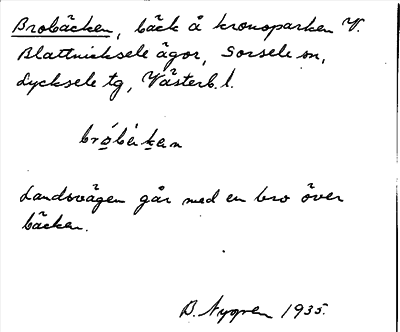 Brobäcken, bäck å kronoparken V.
Blattnicksele ägor, Sorsele sn,
Lycksele tg, Västerb. l.
bro̲bäk̲en
Landsvägen går med en bro över
bäcken.
B. Nygren 1935.